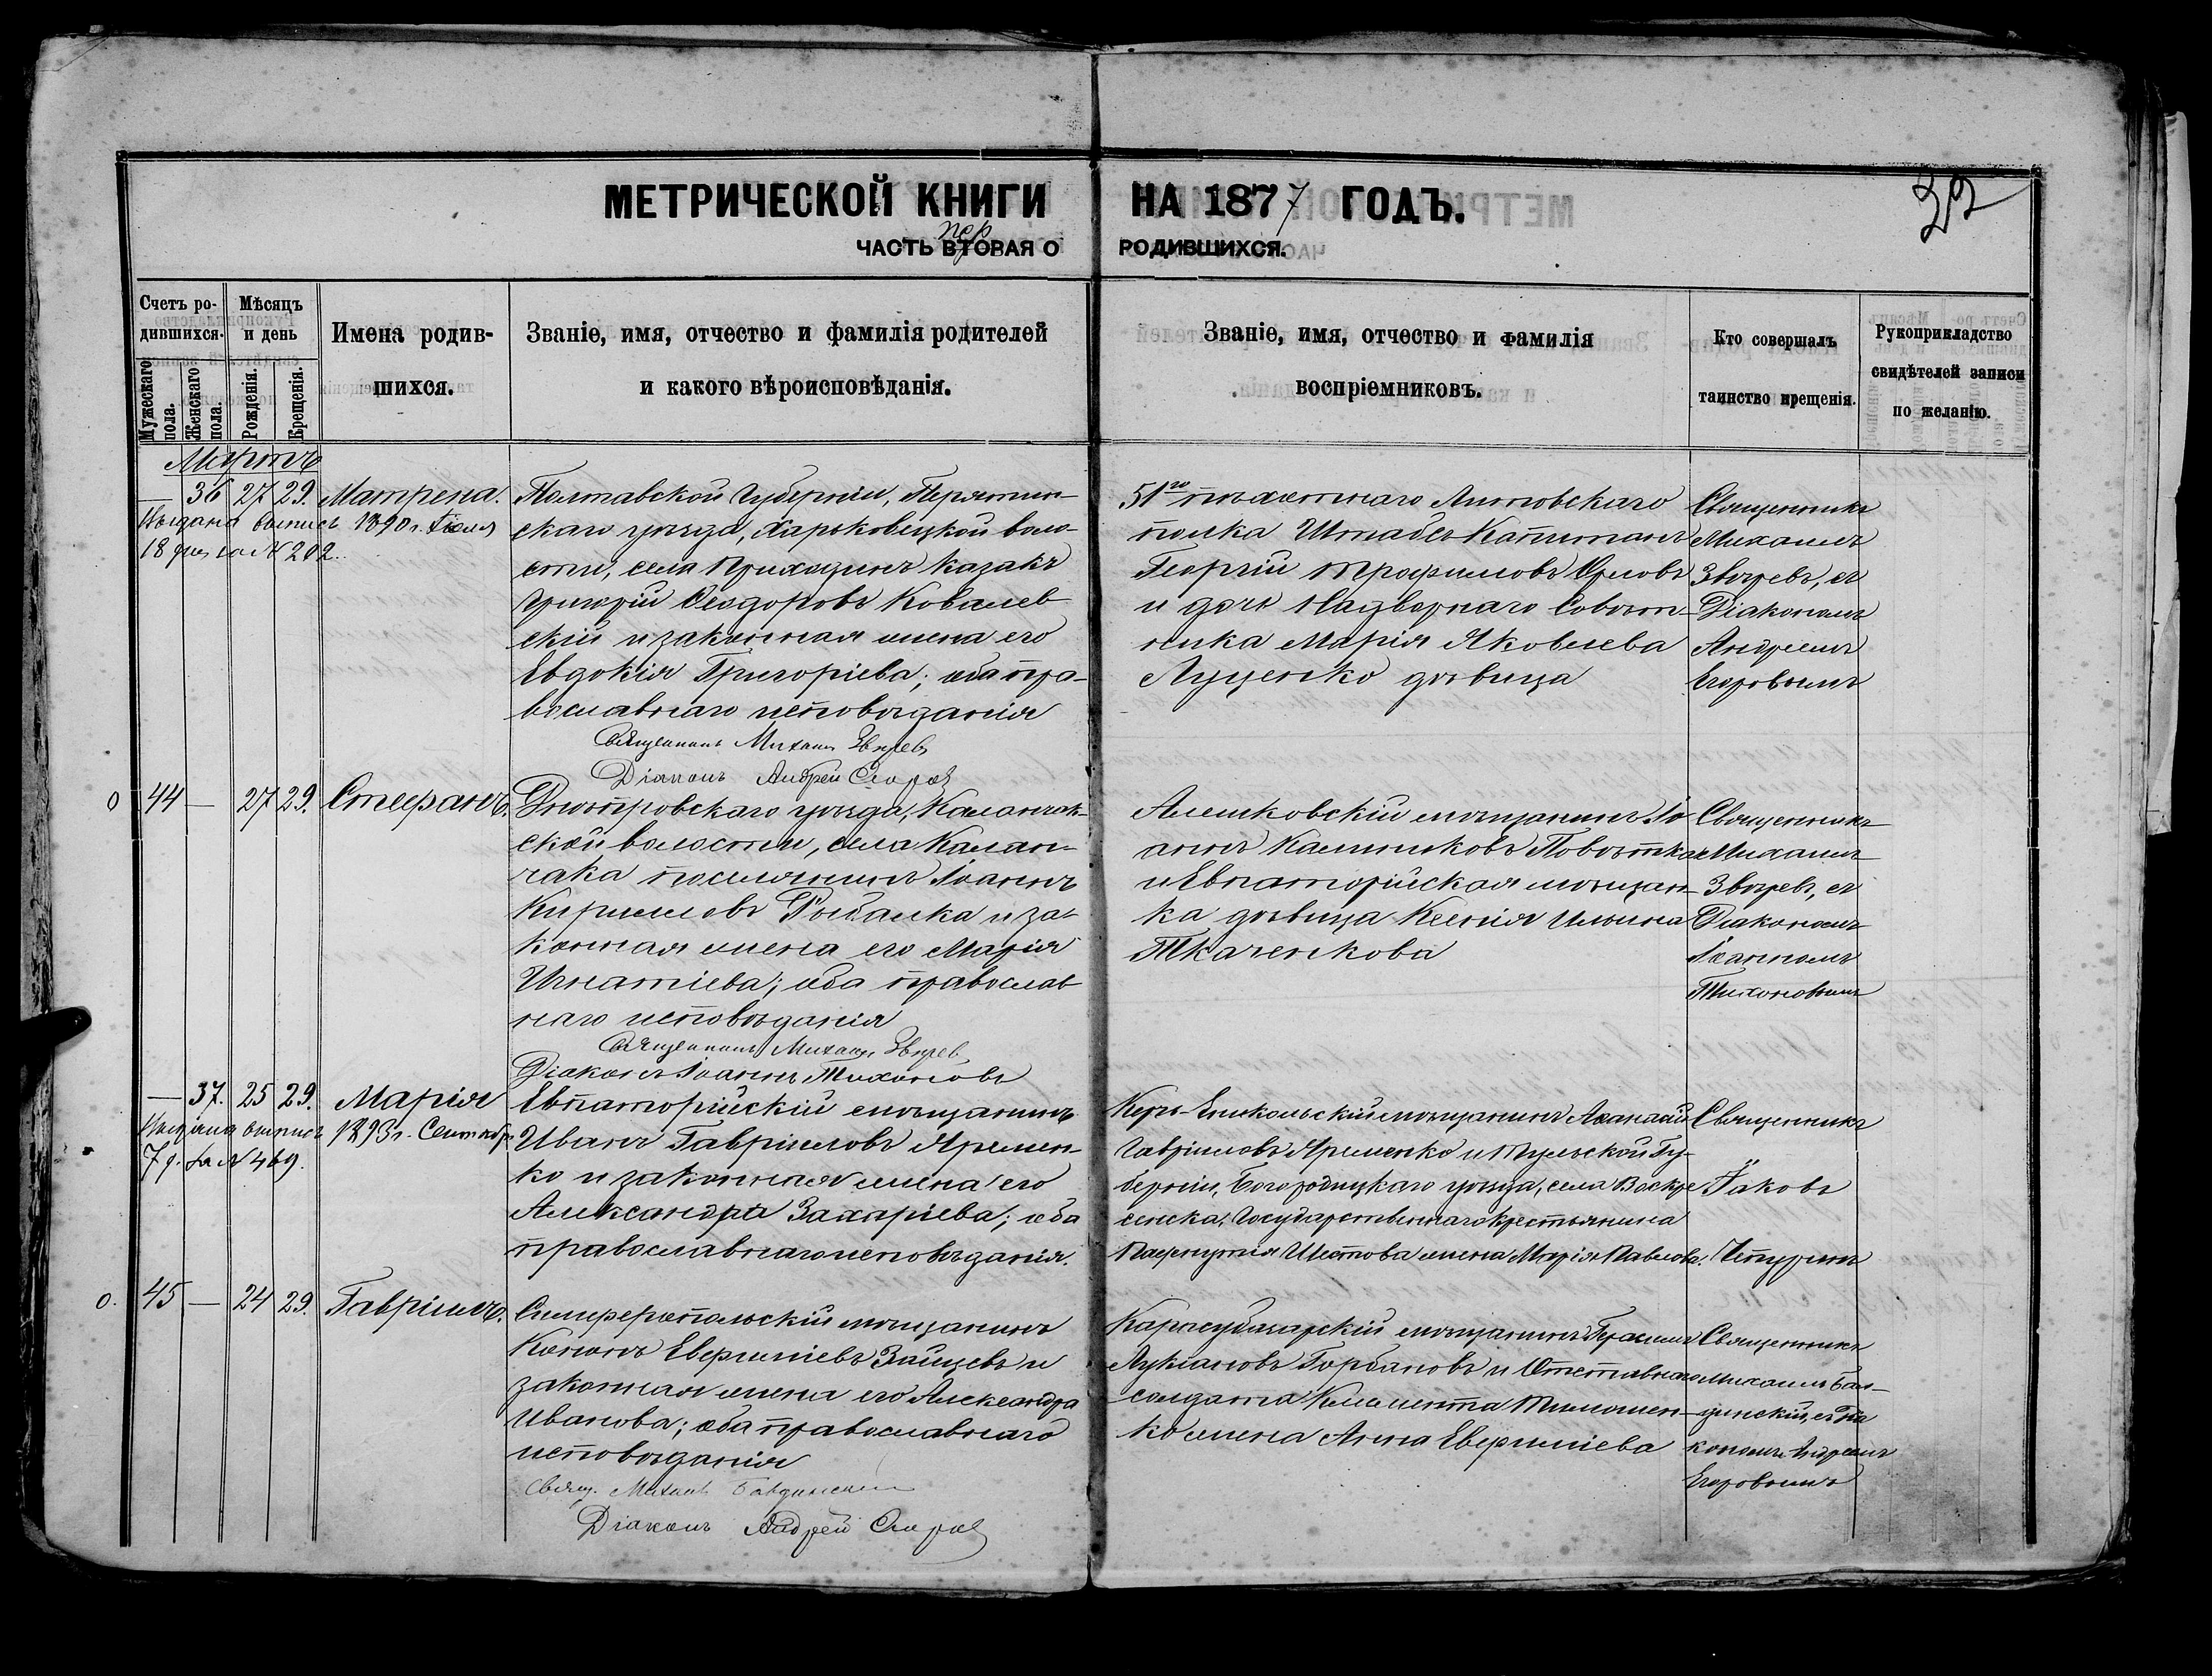 МЕТРИЧЕСКОЙ КНИГИ НА 1877 ГОДЪ.
32
пер
ЧАСТЬ ВТОРАЯ О РОДИВШИХСЯ.
Счетъ ро-
дившихся.
Мужескаго пола.
Женскаго пола.
Мѣсяцъ
и день
Рожденія.
Крещенія.
Имена родив-
шихся.
Званіе, имя, отчество и фамилія родителей
и какого вѣроисповѣданія.
Званіе, имя, отчество и фамилія
воспріемниковъ.
Кто совершалъ
таинство крещенія.
Рукоприкладство
свидѣтелей записи
по желанію.
Мартъ
— 36 27 29. Матрена.
Выдана выпись 1890 г. Іюля
18 дня за № 202.
Полтавской Губерніи, Пирятин-
скаго уѣзда, Харьковецкой воло-
сти, села Приходекъ казакъ
Григорій Ѳеодоровъ Ковалев-
скій и законная жена его
Евдокія Григоріева; оба пра-
вославнаго исповѣданія
Священникъ Михаилъ Звѣревъ
Діаконъ Андрей Егоровъ
51го пѣхотнаго Литовскаго
полка Штабсъ-Капитанъ
Георгій Трофимовъ Орловъ
и дочь Надворнаго Совѣт-
ника Марія Яковлева
Луценко дѣвица
Священникъ
Михаилъ
Звѣревъ, съ
Діакономъ
Андреемъ
Егоровымъ
0 44 — 27 29. Стефанъ.
Днѣпровскаго уѣзда, Каланчак-
ской волости, села Калан-
чака поселянинъ Іоаннъ
Кирилловъ Рыбалка и за-
конная жена его Марія
Игнатіева; оба православ-
наго исповѣданія
Священникъ Михаилъ Звѣрев
Діаконъ Іоаннъ Тихоновъ
Алешковскій мѣщанинъ Іо-
аннъ Калинниковъ Повѣтка
и Евпаторійская мѣщан-
ка дѣвица Ксенія Ильина
Ткаченкова
Священникъ
Михаилъ
Звѣревъ, съ
Діакономъ
Іоанномъ
Тихоновымъ
— 37. 25 29. Марія
Выдана выпись 1893 г. Сентябр.
7 д. за № 469.
Евпаторійскій мѣщанинъ
Иванъ Гавріиловъ Яремен-
ко и законная жена его
Александра Захаріева; оба
православнаго исповѣданія.
Керчь-Еникольскій мѣщанинъ Аѳанасій
Гавріиловъ Яременко и Тульской Гу-
берніи, Богородицкаго уѣзда, села Воскре-
сенска, Государственнаго крестьянина
Пафнутія Шестова жена Марія Павлова.
Священникъ
Іаковъ
Чепуринъ
0. 45 — 24 29. Гавріилъ.
Симферопольскій мѣщанинъ
Кононъ Еверниевъ Зайцевъ и
законная жена его Александра
Иванова; оба православнаго
исповѣданія
Свящ. Михаилъ Бандинскій
Діаконъ Андрей Егоровъ
Карасубазарскій мѣщанинъ Герасимъ
Лукіановъ Горбановъ и Отставнаго
солдата Климента Тимошен-
ко жена Анна Еверниева
Священникъ
Михаилъ Бан-
динскій, съ Діа-
кономъ Андреемъ
Егоровымъ